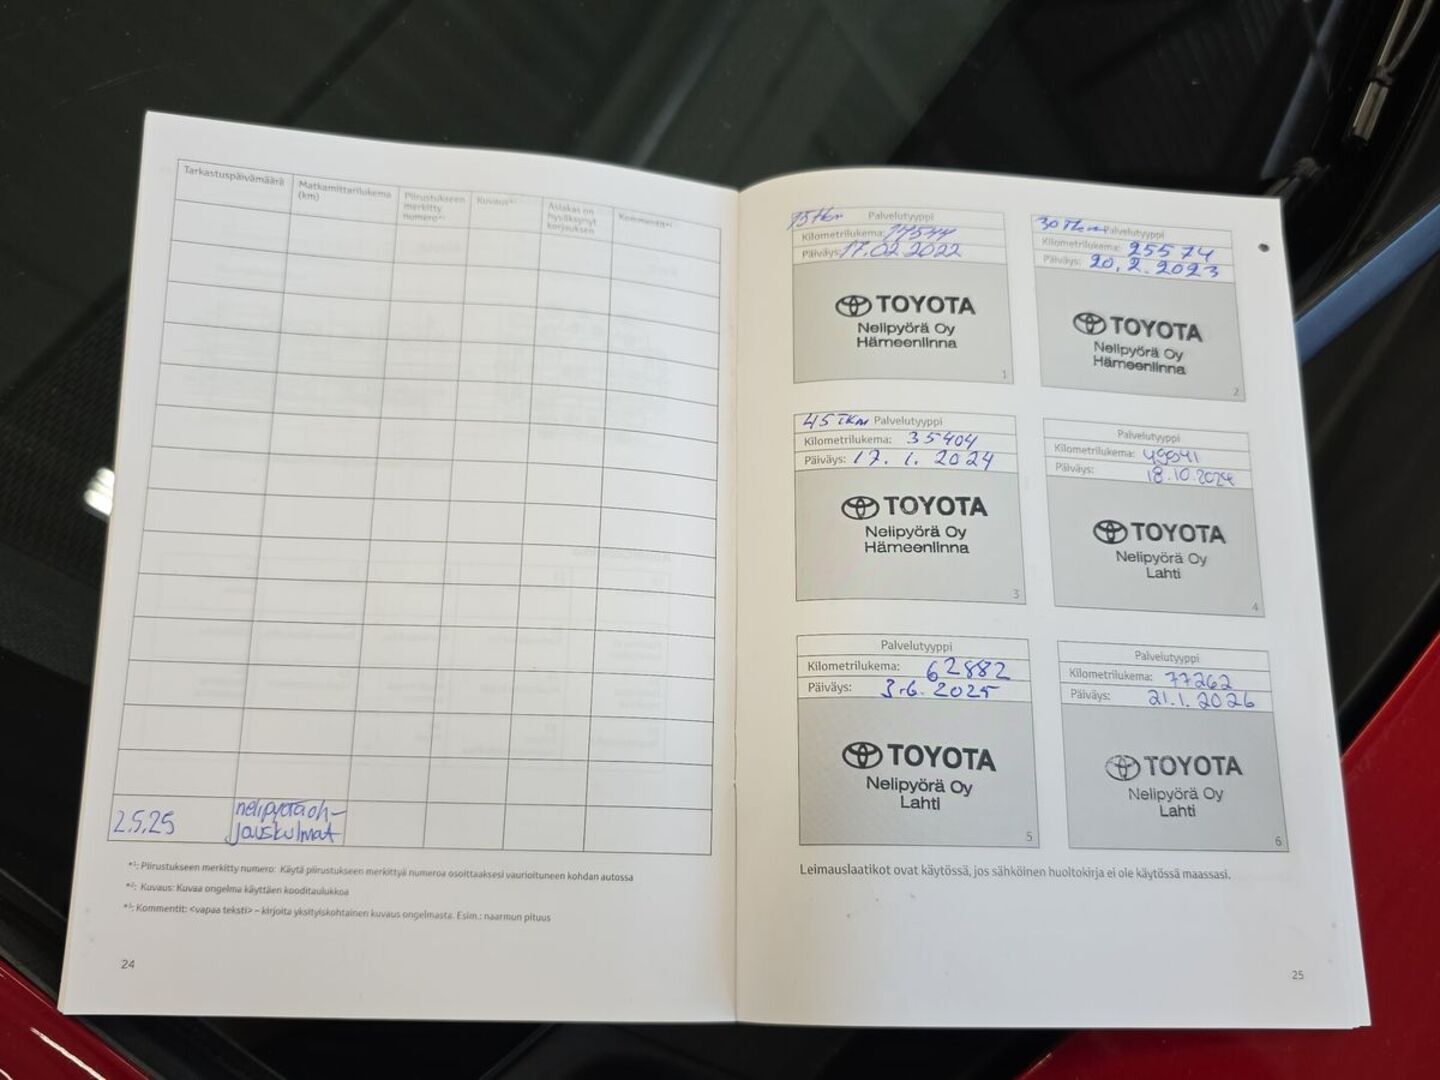 Tarkastuspäivämäärä
Matkamittarilukema
(km)
Piirustukseen
merkitty
numero*¹
Kuvaus*²
Asiakas on
hyväksynyt
korjauksen
Kommentit*³
2.5.25
nelipyöräoh-
jauskulmat
*¹: Piirustukseen merkitty numero: Käytä piirustukseen merkittyä numeroa osoittaaksesi vaurioituneen kohdan autossa
*²: Kuvaus: Kuvaa ongelma käyttäen kooditaulukkoa
*³: Kommentit: <vapaa teksti> – kirjoita yksityiskohtainen kuvaus ongelmasta. Esim.: naarmun pituus
24
15tkm Palvelutyyppi
Kilometrilukema: 17544
Päiväys: 17.02.2022
TOYOTA
Nelipyörä Oy
Hämeenlinna
1
30Tkm Palvelutyyppi
Kilometrilukema: 25574
Päiväys: 20.2.2023
TOYOTA
Nelipyörä Oy
Hämeenlinna
2
45TKm Palvelutyyppi
Kilometrilukema: 35404
Päiväys: 17.1.2024
TOYOTA
Nelipyörä Oy
Hämeenlinna
3
Palvelutyyppi
Kilometrilukema:
Päiväys: 18.10.2024
TOYOTA
Nelipyörä Oy
Lahti
4
Palvelutyyppi
Kilometrilukema: 62882
Päiväys: 3.6.2025
TOYOTA
Nelipyörä Oy
Lahti
5
Palvelutyyppi
Kilometrilukema: 77262
Päiväys: 21.1.2026
TOYOTA
Nelipyörä Oy
Lahti
6
Leimauslaatikot ovat käytössä, jos sähköinen huoltokirja ei ole käytössä maassasi.
25